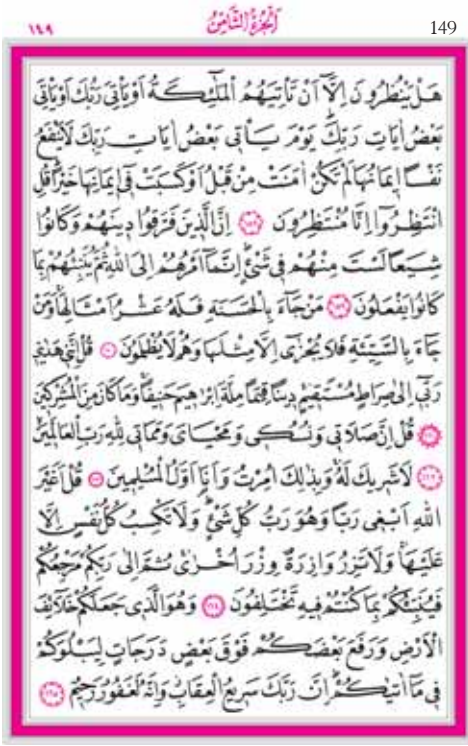 ١٤٩ اَلْجُزْءُ الثَّامِنُ 149
هَلْ يَنْظُرُونَ اِلَّٓا اَنْ تَأْتِيَهُمُ الْمَلٰٓئِكَةُ اَوْ يَأْتِيَ رَبُّكَ اَوْ يَأْتِيَ
بَعْضُ اٰيَاتِ رَبِّكَۜ يَوْمَ يَأْتِي بَعْضُ اٰيَاتِ رَبِّكَ لَا يَنْفَعُ
نَفْسًا ا۪يمَانُهَا لَمْ تَكُنْ اٰمَنَتْ مِنْ قَبْلُ اَوْ كَسَبَتْ ف۪ٓي ا۪يمَانِهَا خَيْرًاۜ قُلِ
انْتَظِرُٓوا اِنَّا مُنْتَظِرُونَ ﴿١٥٨﴾ اِنَّ الَّذ۪ينَ فَرَّقُوا د۪ينَهُمْ وَكَانُوا
شِيَعًا لَسْتَ مِنْهُمْ ف۪ي شَيْءٍۜ اِنَّمَٓا اَمْرُهُمْ اِلَى اللّٰهِ ثُمَّ يُنَبِّئُهُمْ بِمَا
كَانُوا يَفْعَلُونَ ﴿١٥٩﴾ مَنْ جَٓاءَ بِالْحَسَنَةِ فَلَهُ عَشْرُ اَمْثَالِهَاۚ وَمَنْ
جَٓاءَ بِالسَّيِّئَةِ فَلَا يُجْزٰٓى اِلَّا مِثْلَهَا وَهُمْ لَا يُظْلَمُونَ ﴿١٦٠﴾ قُلْ اِنَّن۪ي هَدٰين۪ي
رَبّ۪ٓي اِلٰى صِرَاطٍ مُسْتَق۪يمٍۚ د۪ينًا قِيَمًا مِلَّةَ اِبْرٰه۪يمَ حَن۪يفًاۚ وَمَا كَانَ مِنَ الْمُشْرِك۪ينَ
﴿١٦١﴾ قُلْ اِنَّ صَلَات۪ي وَنُسُك۪ي وَمَحْيَايَ وَمَمَات۪ي لِلّٰهِ رَبِّ الْعَالَم۪ينَۙ
﴿١٦٢﴾ لَا شَر۪يكَ لَهُۚ وَبِذٰلِكَ اُمِرْتُ وَاَنَا۬ اَوَّلُ الْمُسْلِم۪ينَ ﴿١٦٣﴾ قُلْ اَغَيْرَ
اللّٰهِ اَبْغ۪ي رَبًّا وَهُوَ رَبُّ كُلِّ شَيْءٍۜ وَلَا تَكْسِبُ كُلُّ نَفْسٍ اِلَّا
عَلَيْهَاۚ وَلَا تَزِرُ وَازِرَةٌ وِزْرَ اُخْرٰىۚ ثُمَّ اِلٰى رَبِّكُمْ مَرْجِعُكُمْ
فَيُنَبِّئُكُمْ بِمَا كُنْتُمْ ف۪يهِ تَخْتَلِفُونَ ﴿١٦٤﴾ وَهُوَ الَّذ۪ي جَعَلَكُمْ خَلَٓائِفَ
الْاَرْضِ وَرَفَعَ بَعْضَكُمْ فَوْقَ بَعْضٍ دَرَجَاتٍ لِيَبْلُوَكُمْ
ف۪ي مَٓا اٰتٰيكُمْۜ اِنَّ رَبَّكَ سَر۪يعُ الْعِقَابِۘ وَاِنَّهُ لَغَفُورٌ رَح۪يمٌ ﴿١٦٥﴾